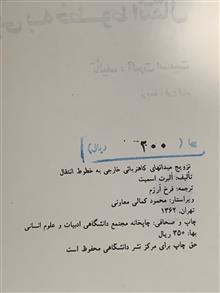 ۲۰۰
تزویج میدانهای کاهربائی خارجی به خطوط انتقال
تألیف: آلبرت اسمیت
ترجمه: فرخ آرزم
ویراستار: محمود کمالی معاونی
تهران، ۱۳۶۲
چاپ و صحافی: چاپخانه مجتمع دانشگاهی ادبیات و علوم انسانی
بها: ۳۵۰ ریال
حق چاپ برای مرکز نشر دانشگاهی محفوظ است